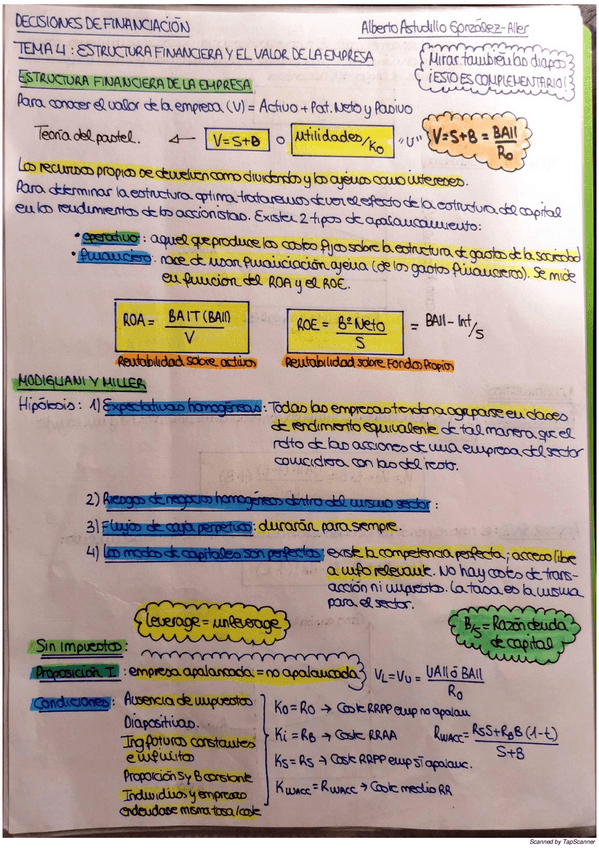 DECISIONES DE FINANCIACIÓN
Alberto Astudillo González-Aller
TEMA 4: ESTRUCTURA FINANCIERA Y EL VALOR DE LA EMPRESA
Mirar también las diapos
¡ESTO ES COMPLEMENTARIO!
ESTRUCTURA FINANCIERA DE LA EMPRESA
Para conocer el valor de la empresa (V) = Activo + Pat. Neto y Pasivo
Teoría del pastel. ← V = S+B o utilidades/Ko "U" V=S+B = BAII/Ro
Los recursos propios se devuelven como dividendos y los ajenos como intereses.
Para determinar la estructura optima trataremos de ver el efecto de la estructura del capital
en los rendimientos de los accionistas. Existen 2 tipos de apalancamiento:
• operativo: aquel que produce los costes fijos sobre la estructura de gastos de la sociedad
• financiero: nace de usar financiación ajena (de los gastos financieros). Se mide
en funcion del ROA y el ROE.
ROA = BAIT (BAII) / V
ROE = Bº Neto / S = BAII - Int/S
Rentabilidad sobre activos
Rentabilidad sobre Fondos Propios
MODIGLIANI Y MILLER
Hipótesis: 1) Expectativas homogéneas: Todas las empresas tienden a agruparse en clases
de rendimiento equivalente de tal manera que el
rdto de las acciones de una empresa del sector
coincidirá con las del resto.
2) Riesgos de negocios homogéneos dentro del mismo sector:
3) Flujos de caja perpetuos: durarán para siempre.
4) Los mdos de capitales son perfectos: existe la competencia perfecta; acceso libre
a info relevante. No hay costes de trans-
acción ni impuestos. La tasa es la misma
para el sector.
Leverage = unleverage
B/S = Razón deuda
de capital
Sin impuestos:
Proposición I: empresa apalancada = no apalancada } VL = VU = UAII ó BAII / Ro
Condiciones: Ausencia de impuestos
Diapositivas.
Ing futuros constantes
e infinitos
Proporción S y B constante
Individuos y empresas
endeudase misma tasa/coste
Ko = Ro → Coste RRPP emp no apalan
Ki = RB → Coste RRAA
KS = RS → Coste RRPP emp sí apalanc.
KWACC = RWACC → Coste medio RR
RWACC = RSS + RBB (1-t) / S+B
Scanned by TapScanner